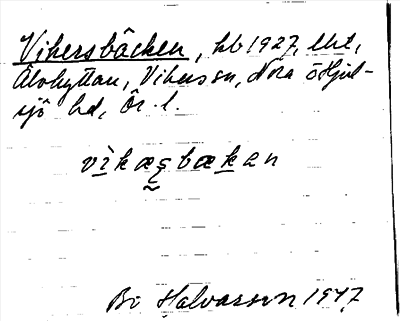 Vikersbäcken, hb 1927, lht,
Älvhyttan, Vikers sn, Nora o Hjul-
sjö bd, Ör. l.
vìkæʂbækan
Bo Halvarsson 1947